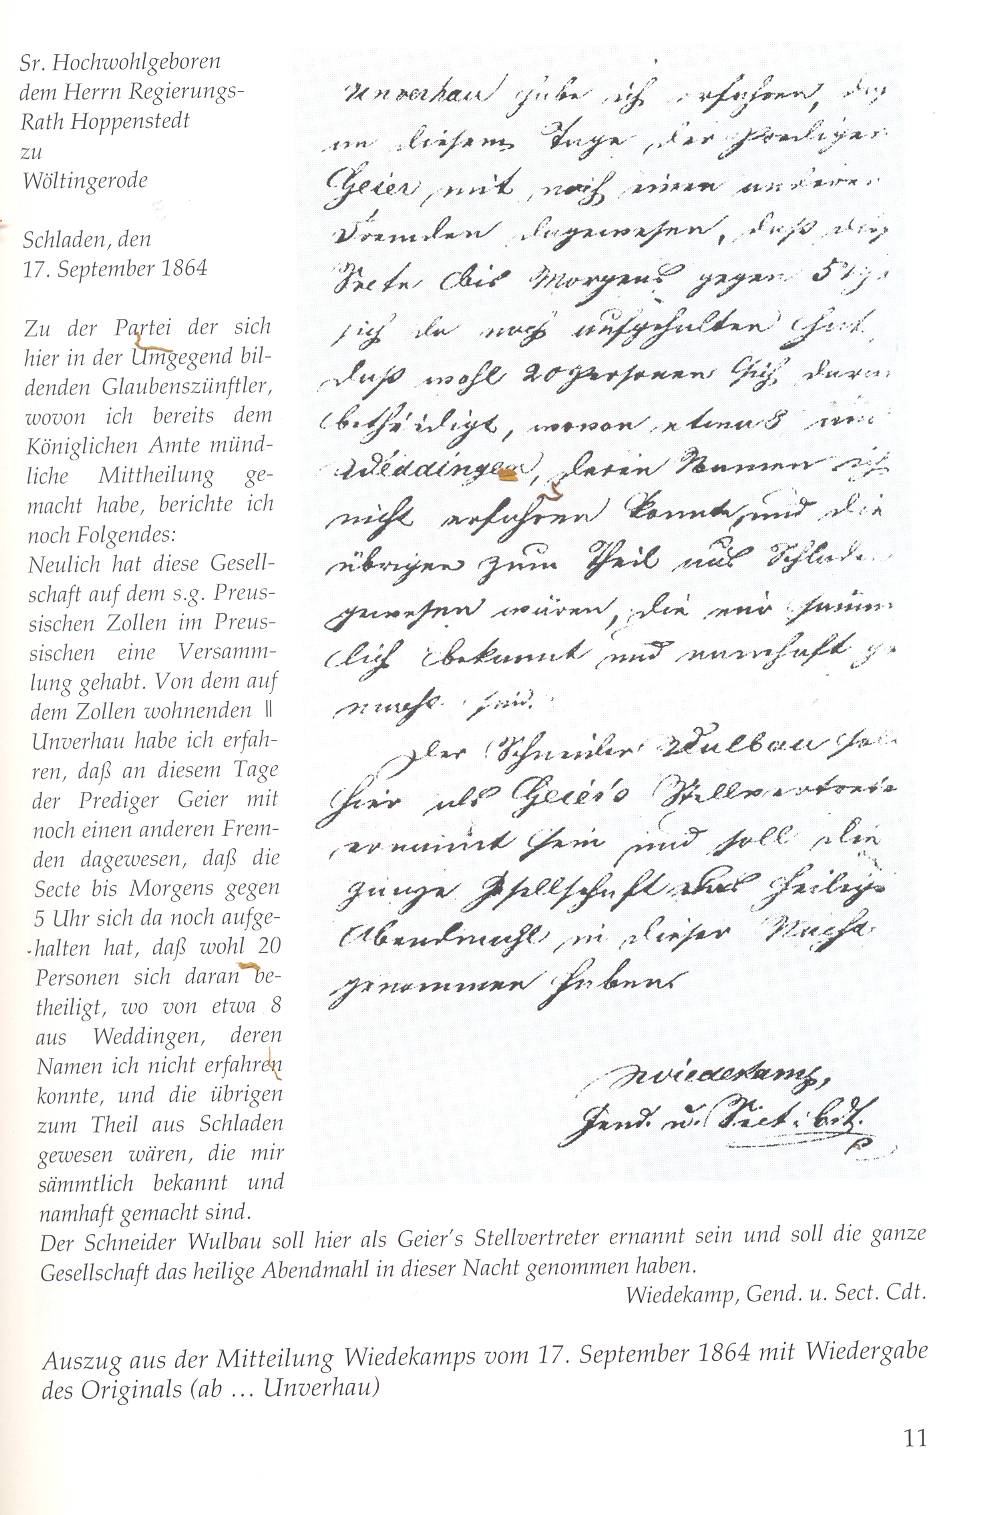 Sr. Hochwohlgeboren
dem Herrn Regierungs-
Rath Hoppenstedt
zu
Wöltingerode
Schladen, den
17. September 1864
Zu der Partei der sich
hier in der Umgegend bil-
denden Glaubenszünftler,
wovon ich bereits dem
Königlichen Amte münd-
liche Mittheilung ge-
macht habe, berichte ich
noch Folgendes:
Neulich hat diese Gesell-
schaft auf dem s.g. Preus-
sischen Zollen im Preus-
sischen eine Versamm-
lung gehabt. Von dem auf
dem Zollen wohnenden ||
Unverhau habe ich erfah-
ren, daß an diesem Tage
der Prediger Geier mit
noch einen anderen Frem-
den dagewesen, daß die
Secte bis Morgens gegen
5 Uhr sich da noch aufge-
halten hat, daß wohl 20
Personen sich daran be-
theiligt, wo von etwa 8
aus Weddingen, deren
Namen ich nicht erfahren
konnte, und die übrigen
zum Theil aus Schladen
gewesen wären, die mir
sämmtlich bekannt und
namhaft gemacht sind.
Der Schneider Wulbau soll hier als Geier's Stellvertreter ernannt sein und soll die ganze
Gesellschaft das heilige Abendmahl in dieser Nacht genommen haben.
Wiedekamp, Gend. u. Sect. Cdt.
Unverhau habe ich erfahren, daß
an diesem Tage der Prediger
Geier mit noch einen anderen
Fremden dagewesen, daß die
Secte bis Morgens gegen 5
sich da noch aufgehalten hat,
daß wohl 20 Personen sich daran
betheidigt, wovon etwa 8 aus
Weddingen, deren Namen ich
nicht erfahren konnte, und die
übrigen zum Theil aus Schladen
gewesen wären, die mir sämm
lich bekannt und namhaft ge
macht sind.
Der Schneider Wulbau soll
hier als Geier's Stellvertreter
ernannt sein und soll die
ganze Gesellschaft das heilige
Abendmahl in dieser Nacht
genommen haben
Wiedekamp,
Gend. u. Sect. Cdt.
Auszug aus der Mitteilung Wiedekamps vom 17. September 1864 mit Wiedergabe
des Originals (ab … Unverhau)
11